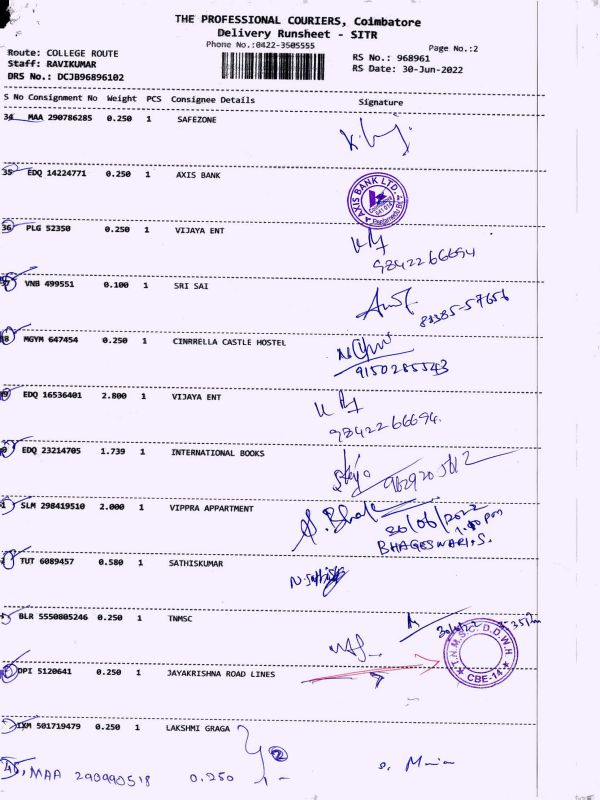 THE PROFESSIONAL COURIERS, Coimbatore
Delivery Runsheet - SITR
Phone No.:0422-3505555
Page No.:2
Route: COLLEGE ROUTE
Staff: RAVIKUMAR
DRS No.: DCJB96896102
RS No.: 968961
RS Date: 30-Jun-2022
S No Consignment No Weight PCS Consignee Details Signature
34 MAA 290786285 0.250 1 SAFEZONE
35 EDQ 14224771 0.250 1 AXIS BANK
AXIS BANK LTD.
36 PLG 52350 0.250 1 VIJAYA ENT
9842266694
VNB 499551 0.100 1 SRI SAI
MGYM 647454 0.250 1 CINRRELLA CASTLE HOSTEL
9150285543
EDQ 16536401 2.800 1 VIJAYA ENT
9842266694.
EDQ 23214705 1.739 1 INTERNATIONAL BOOKS
SLM 298419510 2.000 1 VIPPRA APPARTMENT
30/06/2022
BHAGESWARI.S.
TUT 6089457 0.580 1 SATHISKUMAR
BLR 5550805246 0.250 1 TNMSC
T.N.M.S.C. D.D.W.H.
CBE-14
DPI 5120641 0.250 1 JAYAKRISHNA ROAD LINES
IXM 501719479 0.250 1 LAKSHMI GRAGA
2
MAA 290990518 0.250 1